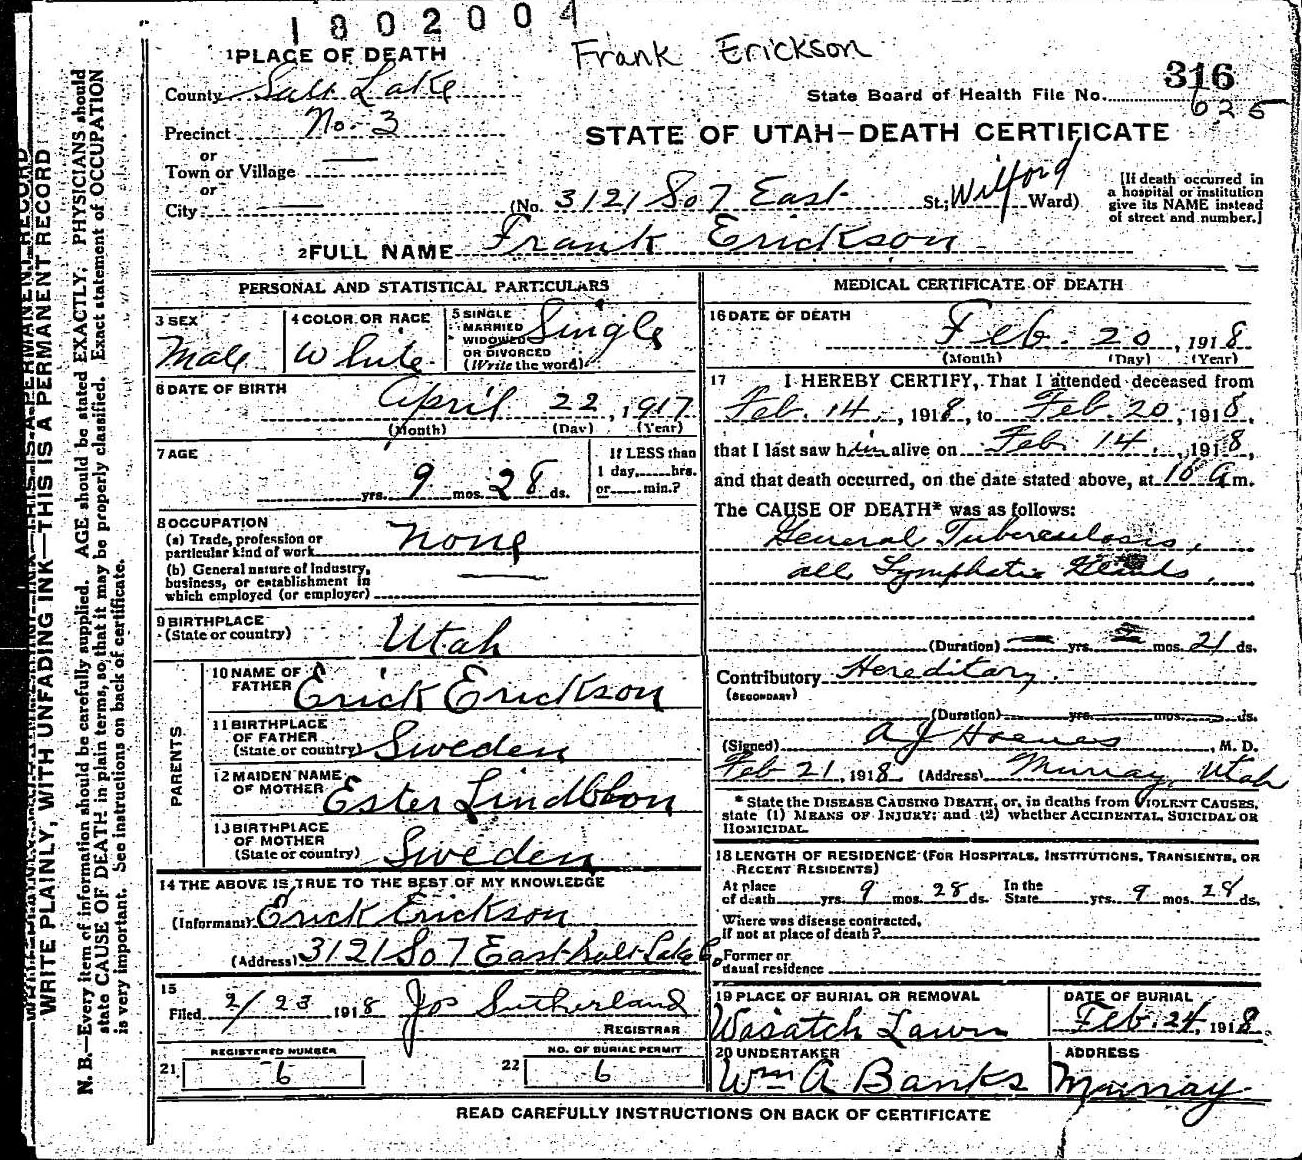 1802004
Frank Erickson
316
625
1 PLACE OF DEATH
County Salt Lake
State Board of Health File No.
Precinct No. 3
STATE OF UTAH—DEATH CERTIFICATE
or
Town or Village
or
City
(No. 3121 So 7 East St.; Wilford Ward)
[If death occurred in a hospital or institution give its NAME instead of street and number.]
2 FULL NAME Frank Erickson
PERSONAL AND STATISTICAL PARTICULARS
3 SEX
Male
4 COLOR OR RACE
White
5 SINGLE
MARRIED
WIDOWED
OR DIVORCED
(Write the word)
Single
6 DATE OF BIRTH
April 22, 1917
(Month) (Day) (Year)
7 AGE
yrs. 9 mos. 28 ds.
If LESS than
1 day,......hrs.
or......min.?
8 OCCUPATION
(a) Trade, profession or
particular kind of work None
(b) General nature of Industry,
business, or establishment in
which employed (or employer)
9 BIRTHPLACE
(State or country) Utah
PARENTS
10 NAME OF
FATHER Erick Erickson
11 BIRTHPLACE
OF FATHER
(State or country) Sweden
12 MAIDEN NAME
OF MOTHER Ester
13 BIRTHPLACE
OF MOTHER
(State or country) Sweden
14 THE ABOVE IS TRUE TO THE BEST OF MY KNOWLEDGE
(Informant) Erick Erickson
(Address) 3121 So 7 East Salt Lake Co
15
Filed 2/23 1918 Jos Sutherland
REGISTRAR
REGISTERED NUMBER
21. 6
NO. OF BURIAL PERMIT
22 6
MEDICAL CERTIFICATE OF DEATH
16 DATE OF DEATH
Feb. 20, 1918
(Month) (Day) (Year)
17 I HEREBY CERTIFY, That I attended deceased from
Feb. 14, 1918, to Feb. 20, 1918,
that I last saw him alive on Feb 14, 1918,
and that death occurred, on the date stated above, at 10 a m.
The CAUSE OF DEATH* was as follows:
General Tuberculosis,
all Lymphatic Glands,
(Duration) — yrs. mos. 21 ds.
Contributory Hereditary.
(SECONDARY)
(Duration) yrs. mos. ds.
(Signed) A J , M. D.
Feb 21, 1918 (Address) Murray, Utah
* State the DISEASE CAUSING DEATH, or, in deaths from VIOLENT CAUSES,
state (1) MEANS OF INJURY; and (2) whether ACCIDENTAL, SUICIDAL OR
HOMICIDAL.
18 LENGTH OF RESIDENCE (FOR HOSPITALS, INSTITUTIONS, TRANSIENTS, OR
RECENT RESIDENTS)
At place
of death yrs. 9 mos. 28 ds. In the
State yrs. 9 mos. 28 ds.
Where was disease contracted,
if not at place of death?
Former or
usual residence
19 PLACE OF BURIAL OR REMOVAL
Wasatch Lawn
DATE OF BURIAL
Feb. 24, 1918
20 UNDERTAKER
Wm A Banks
ADDRESS
Murray
READ CAREFULLY INSTRUCTIONS ON BACK OF CERTIFICATE
WRITE PLAINLY, WITH UNFADING INK—THIS IS A PERMANENT RECORD
N. B.—Every item of information should be carefully supplied. AGE should be stated EXACTLY. PHYSICIANS should
state CAUSE OF DEATH in plain terms, so that it may be properly classified. Exact statement of OCCUPATION
is very important. See instructions on back of certificate.